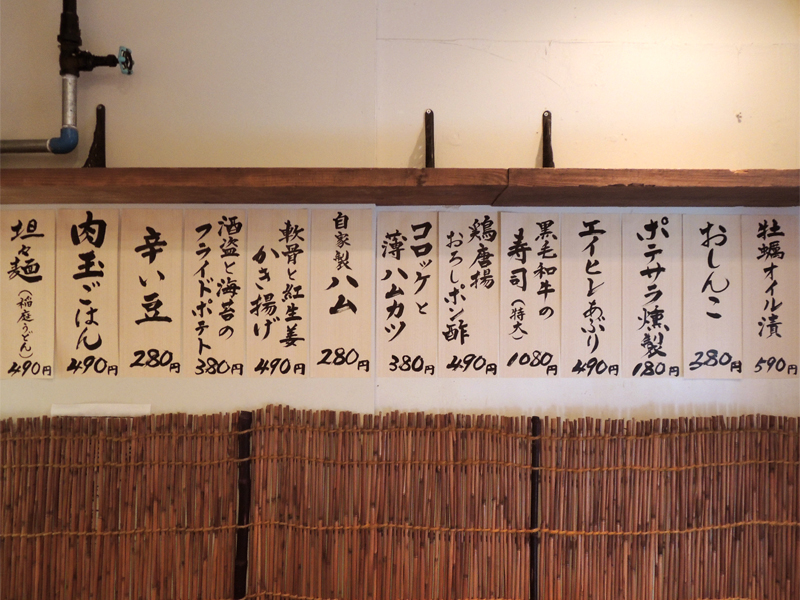 牡蠣オイル漬
590円
おしんこ
380円
ポテサラ燻製
180円
エイヒレあぶり
490円
黒毛和牛の
寿司(特大)
1080円
鶏唐揚
おろしポン酢
490円
コロッケと
薄ハムカツ
380円
自家製
ハム
280円
軟骨と紅生姜
かき揚げ
490円
酒盗と海苔の
フライドポテト
380円
辛い豆
280円
肉玉ごはん
490円
坦々麺
(稲庭うどん)
490円